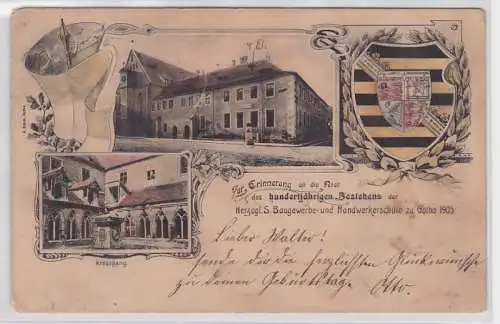 Zur Erinnerung an die Feier
des hundertjährigen Bestehens der
Herzogl. S. Baugewerbe- und Handwerkerschule zu Gotha 1905
Kreuzgang.
Lieber Walter!
sende dir die herzlichsten Glückwünsche
zu deinem Geburtstage. Otto.